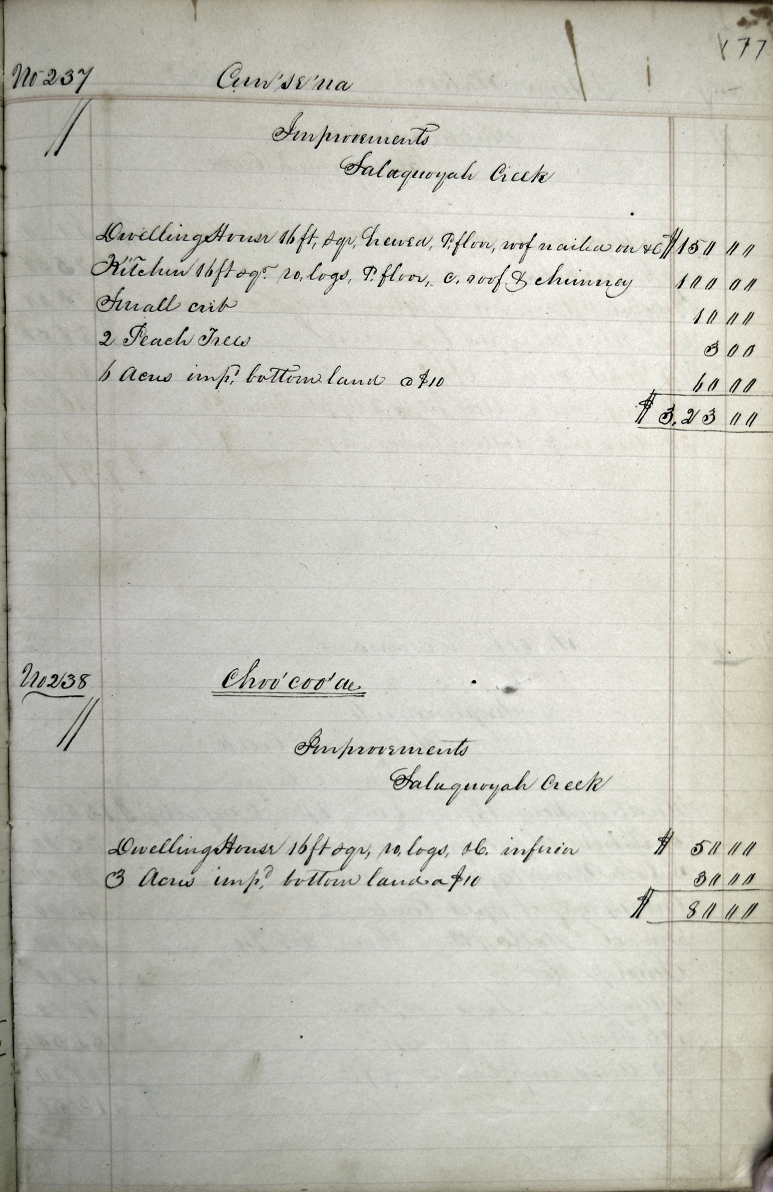 177
No 237 Cun'se'na
Improvements
Salaquoyah Creek
Dwelling House 16 ft, sqr, hewed, P. floor, roof nailed on &c $ 150 00
Kitchen 16 ft sqr ro, logs, P. floor, c. roof & chimney 100 00
Small crib 10 00
2 Peach Trees 3 00
6 Acres imp.d bottom land @ $10 60 00
$ 3.23 00
No 238 Choo'coo'ae
Improvements
Salaquoyah Creek
Dwelling House 16 ft sqr, ro, logs, &c. inferior $ 50 00
3 Acres imp.d bottom land @ $10 30 00
$ 80 00